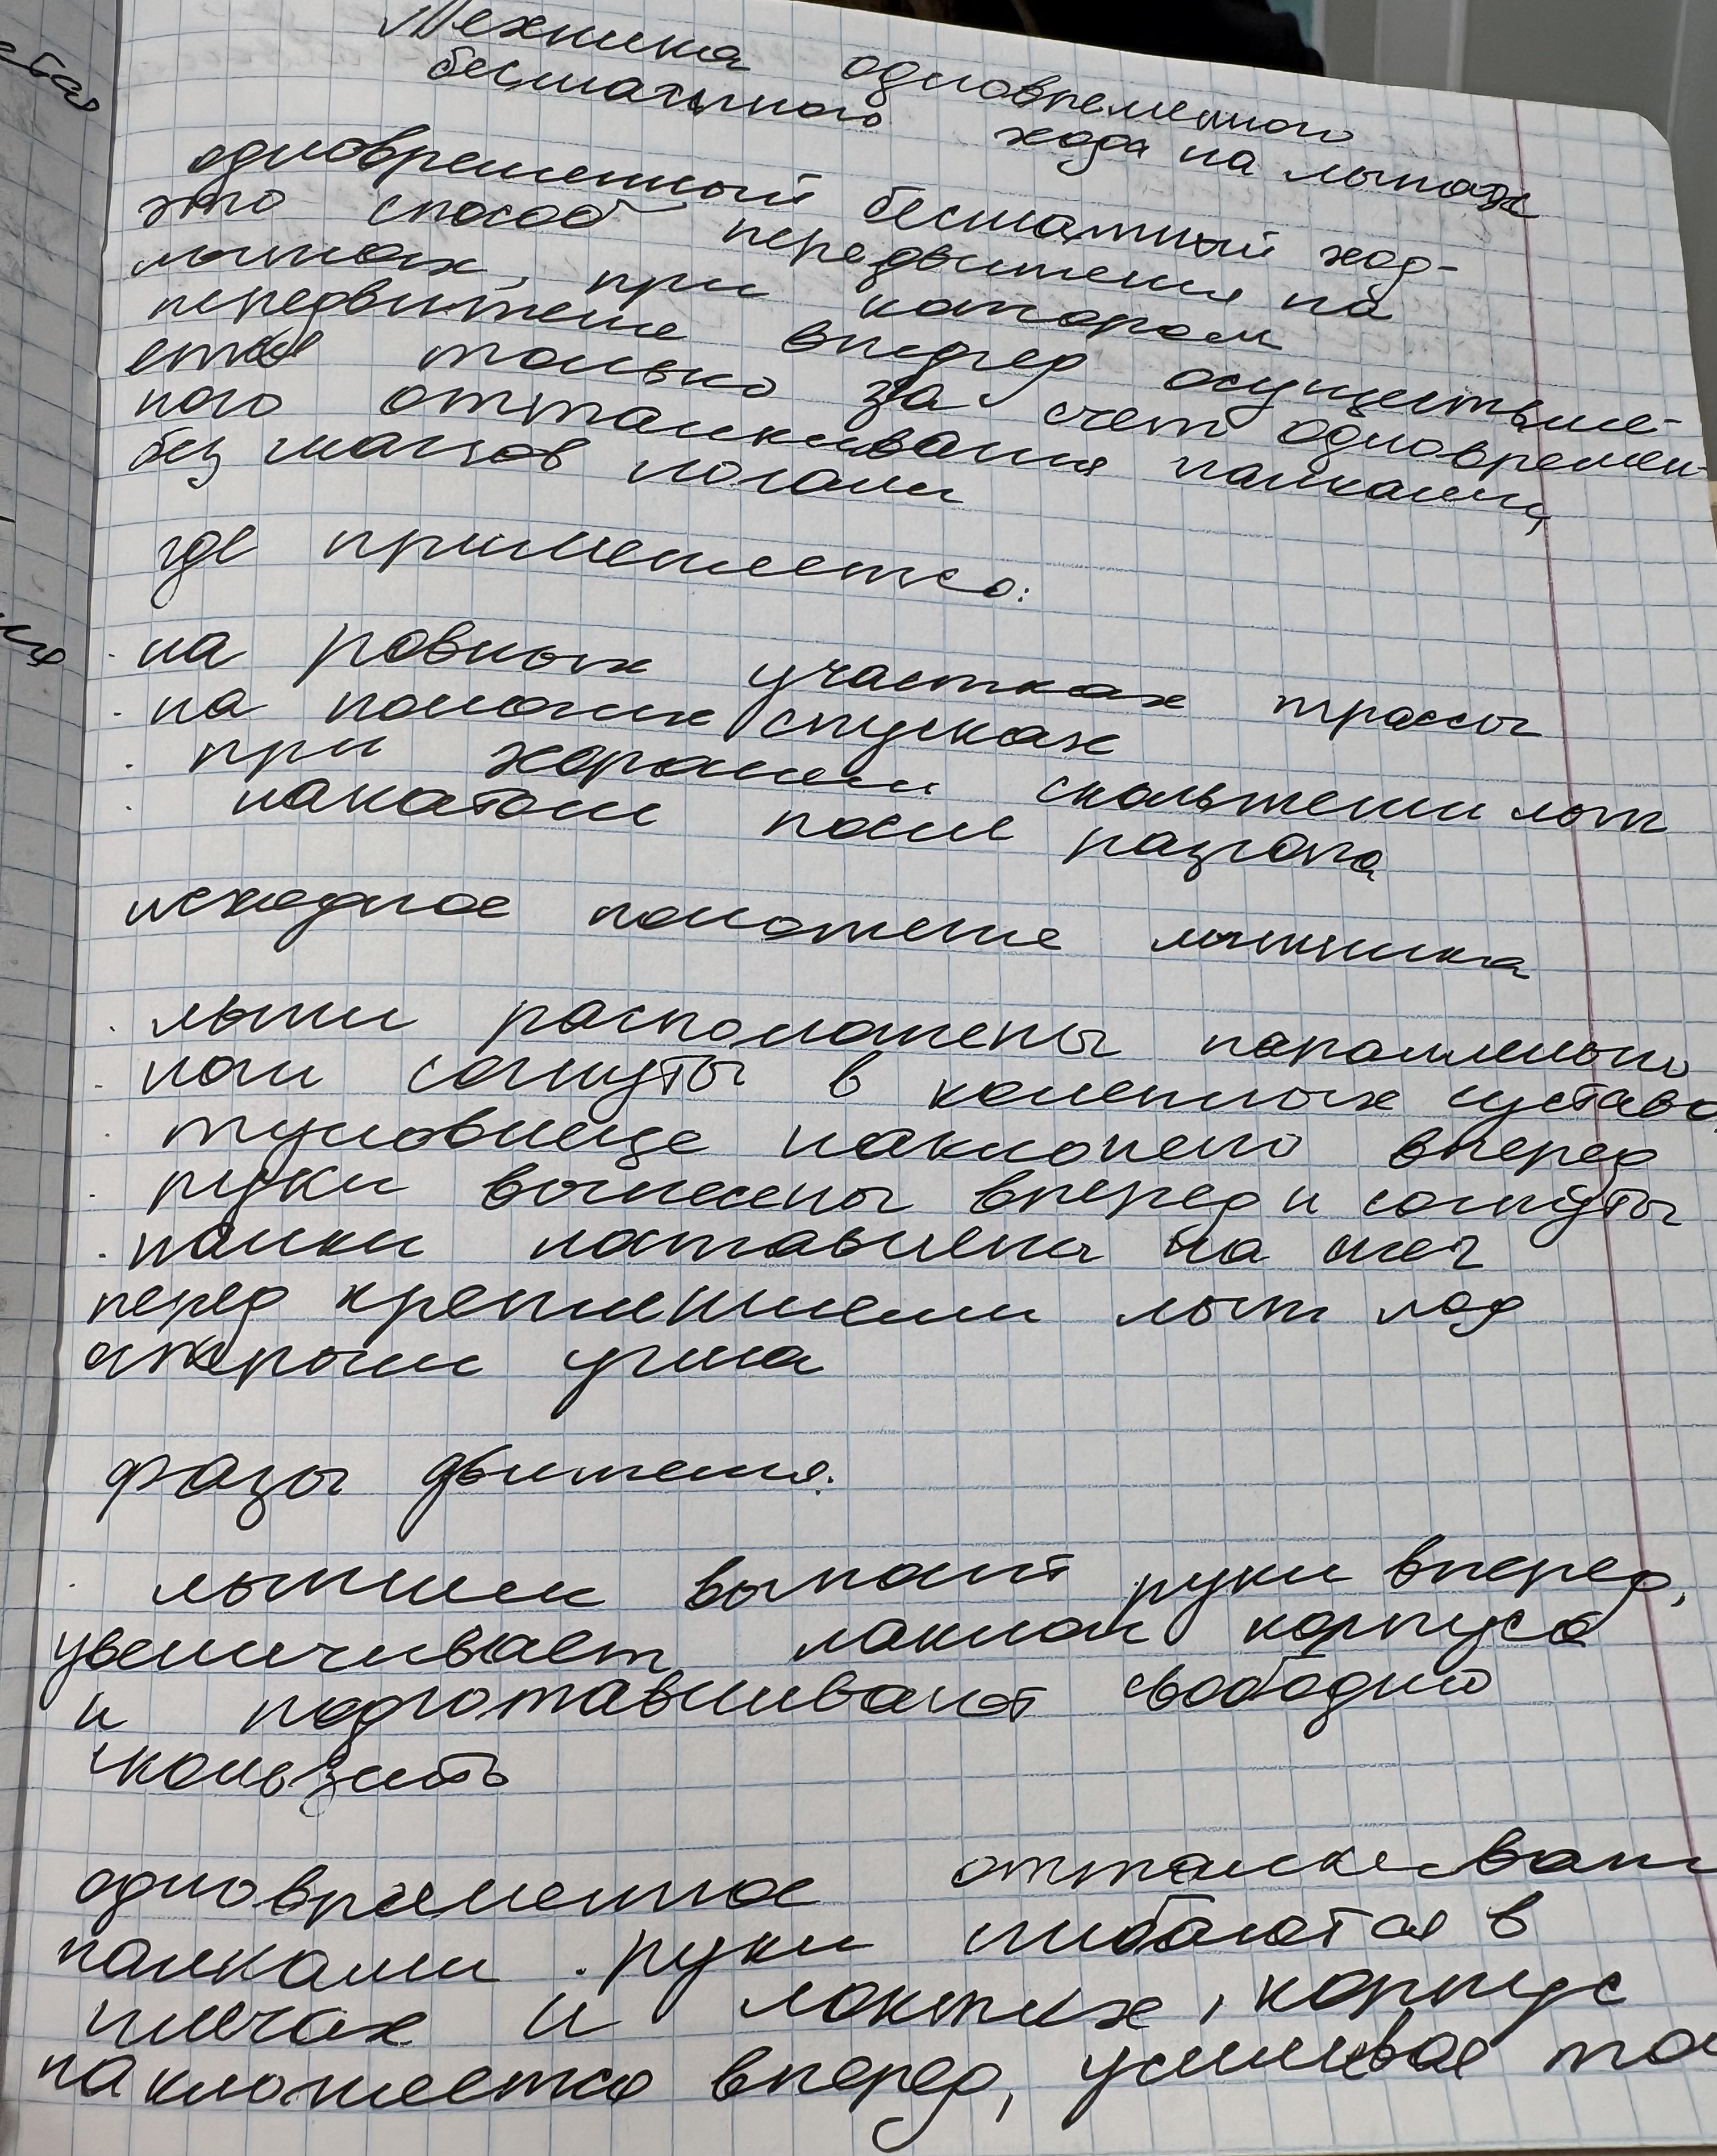 Техника одновременного
бесшажного хода на лыжах
одновременный бесшажный ход-
это способ передвижения на
лыжах, при котором
передвижение вперед осуществля-
ется только за счет одновремен-
ного отталкивания палками,
без шагов ногами
где применяется:
· на ровных участках трассы
· на пологих спусках
· при хорошем скольжении лыж
· накатом после разгона
исходное положение лыжника
· лыжи расположены параллельно
· ноги согнуты в коленных сустава
· туловище наклонено вперед
· руки вынесены вперед и согнуты
· палки поставлены на снег
перед креплениями лыж под
острым углом
фазы движения:
· лыжник выносит руки вперед,
увеличивает наклон корпуса
и подготавливают свободно
скользить
одновременное отталкивани
палками. руки сгибаются в
плечах и локтях, корпус
наклоняется вперед, усиливая то